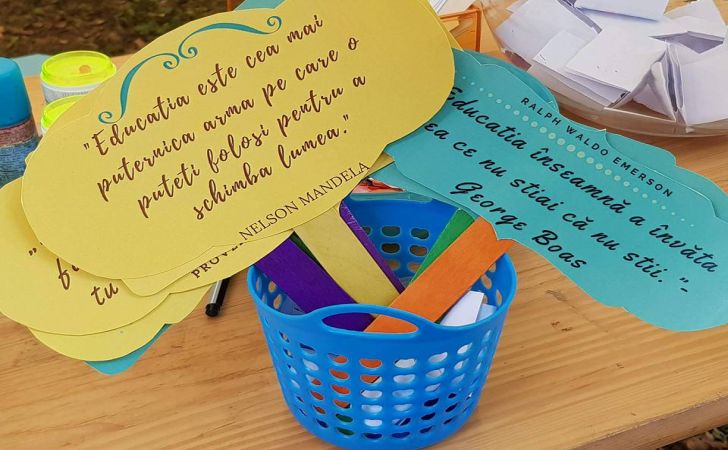 "Educatia este cea mai
puternica arma pe care o
puteti folosi pentru a
schimba lumea."
NELSON MANDELA
RALPH WALDO EMERSON
Educatia înseamnă a învăta
ea ce nu stiai că nu stii."-
George Boas
tu
PROVE